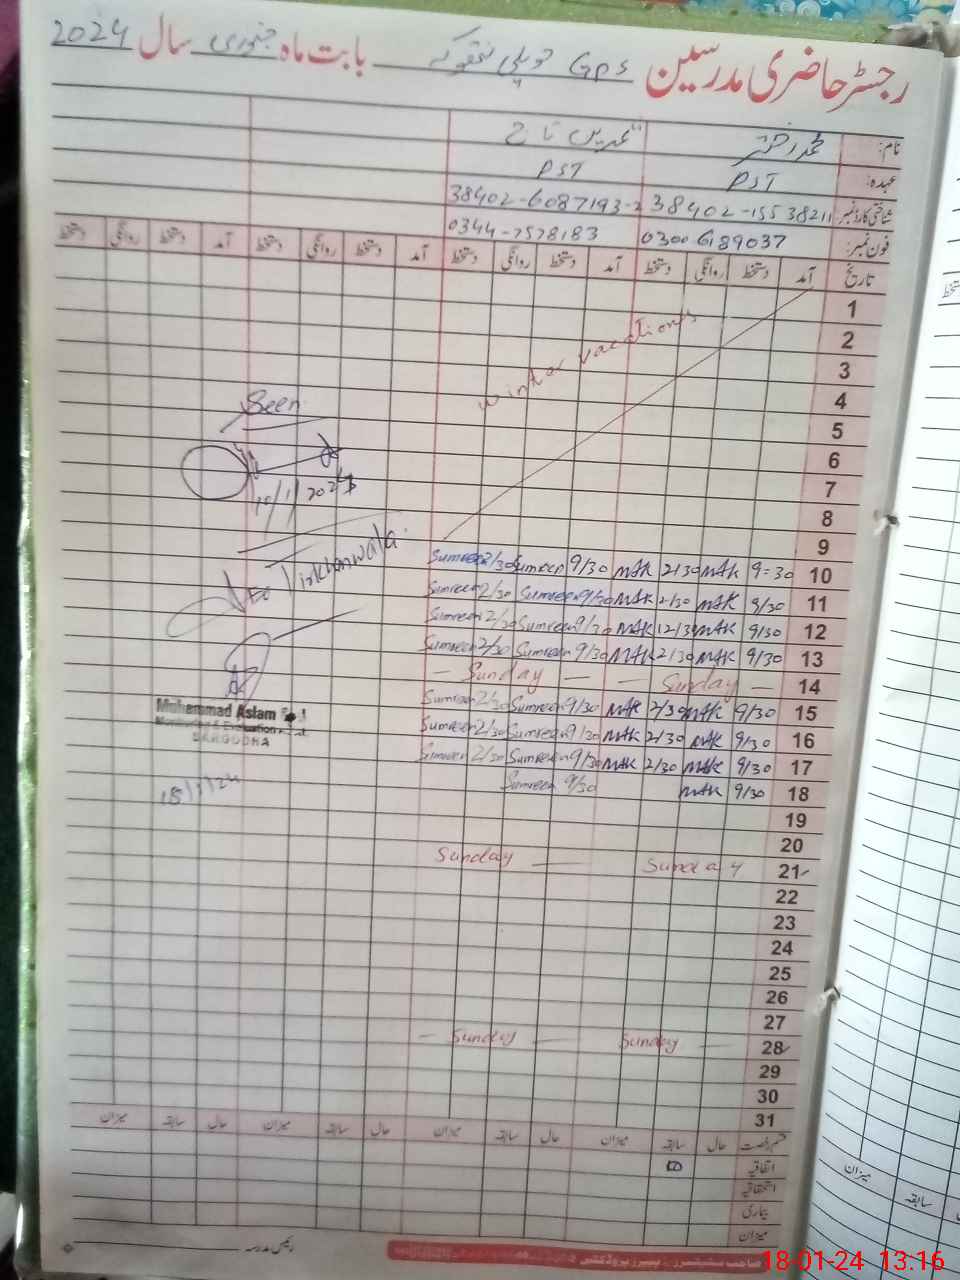 رجسٹر حاضری مدرسین GPS حویلی بابت ماہ جنوری سال 2024
نام: محمد اختر ثمرین تاج
عہدہ: PST PST
شناختی کارڈ نمبر 38402-15538211 38402-6087193-2
فون نمبر: 03006189037 0344-7578183
تاریخ آمد دستخط روانگی دستخط آمد دستخط روانگی دستخط آمد دستخط روانگی دستخط آمد دستخط روانگی دستخط
1
2
winter vacations
3
4
Seen
5
6
7
10/1/2024
8
9
10 9=30 MAK 2/30 MAK 9/30 Sumreen 2/30 Sumreen
11 9/30 MAK 2/30 MAK 9/30 Sumreen 2/30 Sumreen
12 9/30 MAK 12/30 MAK 9/30 Sumreen 2/30 Sumreen
13 9/30 MAK 2/30 MAK 9/30 Sumreen 2/30 Sumreen
14 — Sunday — — Sunday —
15 9/30 MAK 2/30 MAK 9/30 Sumreen 2/30 Sumreen
16 9/30 MAK 2/30 MAK 9/30 Sumreen 2/30 Sumreen
17 9/30 MAK 2/30 MAK 9/30 Sumreen 2/30 Sumreen
18 9/30 MAK 9/30 Sumreen
Muhammad Aslam
SARGODHA
18/1/24
19
20
21 Sunday Sunday
22
23
24
25
26
27
28 Sunday — Sunday —
29
30
31
قسم رخصت حال سابقہ میزان حال سابقہ میزان حال سابقہ میزان حال سابقہ میزان
اتفاقیہ
استحقاقیہ
بیماری
میزان
رئیس مدرسہ
میزان
سابقہ
18-01-24 13:16